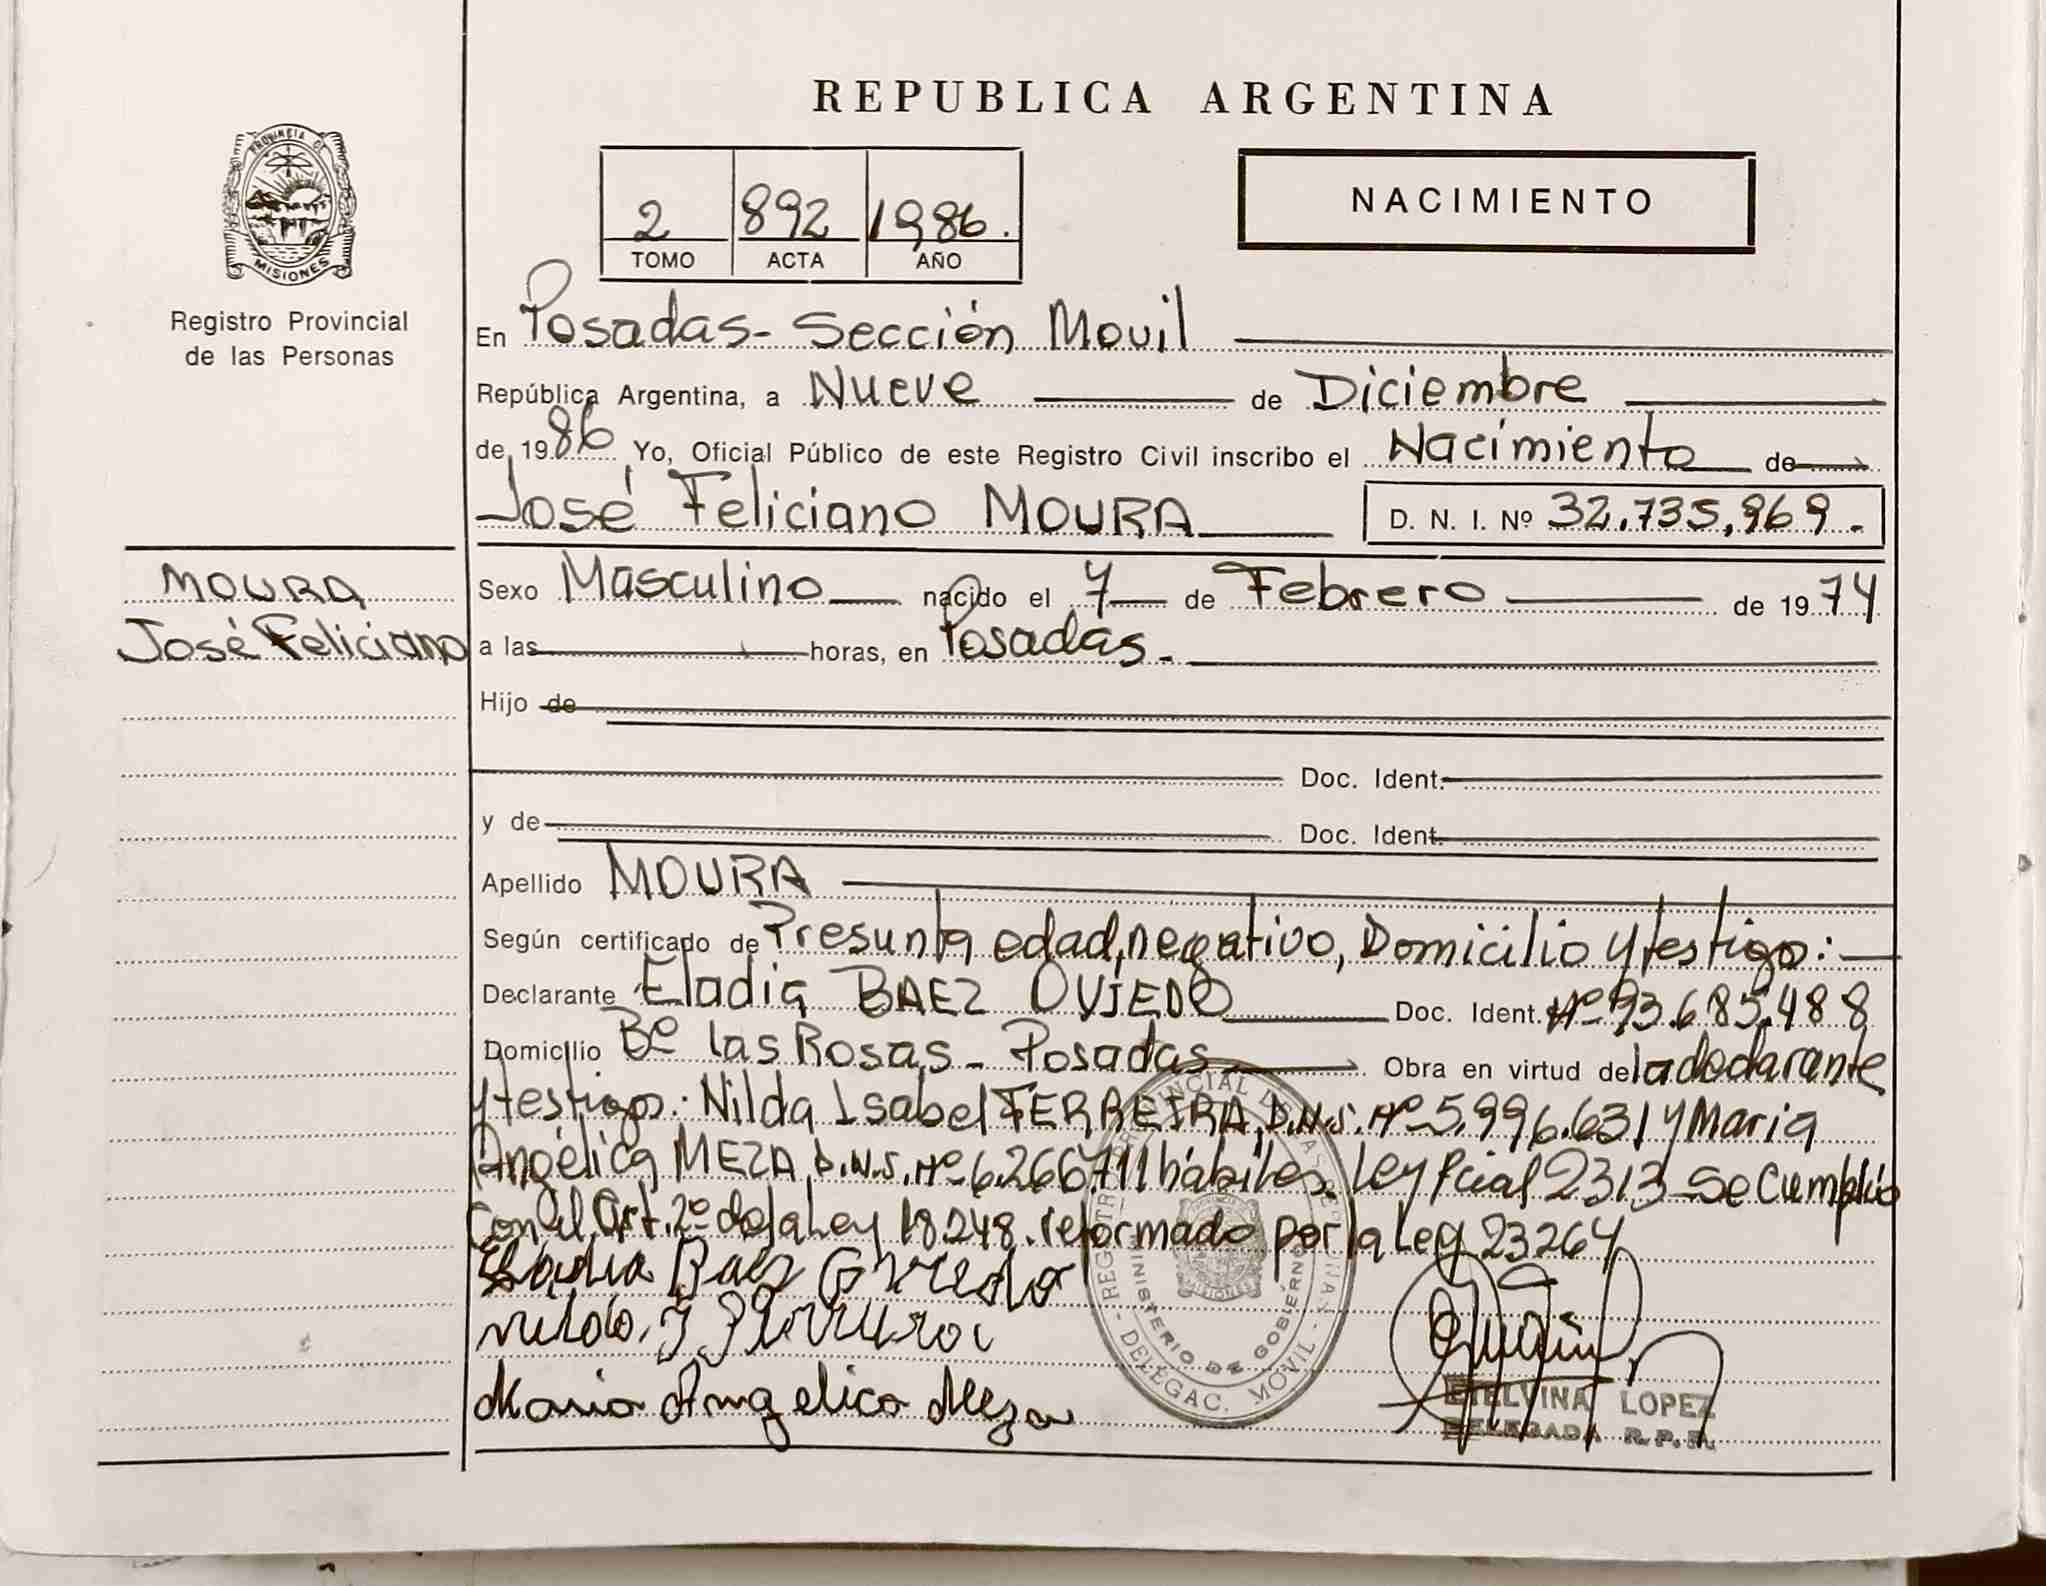 REPUBLICA ARGENTINA
PROVINCIA DE MISIONES
Registro Provincial
de las Personas
2 892 1986.
TOMO ACTA AÑO
NACIMIENTO
En Posadas- Sección Movil
República Argentina, a Nueve de Diciembre
de 1986 Yo, Oficial Público de este Registro Civil inscribo el Nacimiento de
José Feliciano MOURA D. N. I. Nº 32.735.969.-
MOURA
José Feliciano
Sexo Masculino nacido el 7 de Febrero de 1974
a las horas, en Posadas.-
Hijo de
Doc. Ident.
y de Doc. Ident.
Apellido MOURA
Según certificado de Presunta edad, negativo, Domicilio y testigo:
Declarante Eladia BAEZ OVIEDO Doc. Ident. Nº 93.685.488
Domicilio Bº las Rosas - Posadas Obra en virtud de la declarante
y testigos: Nilda Isabel FERREIRA, D.N.I. Nº 5.996.631 y Maria
Angélica MEZA D.N.I. Nº 6.266.711 hábiles. Ley Pcial 2313 - Se Cumplió
Con el Art. 2º de la Ley 18.248. reformado por la Ley 23264
Eladia Baez Oviedo
Nilda I Ferreira
Maria Angelica Meza
REGISTRO PROVINCIAL DE LAS PERSONAS
MINISTERIO DE GOBIERNO
DELEGAC. MOVIL
MISIONES
ETELVINA LOPEZ
DELEGADA R.P.P.